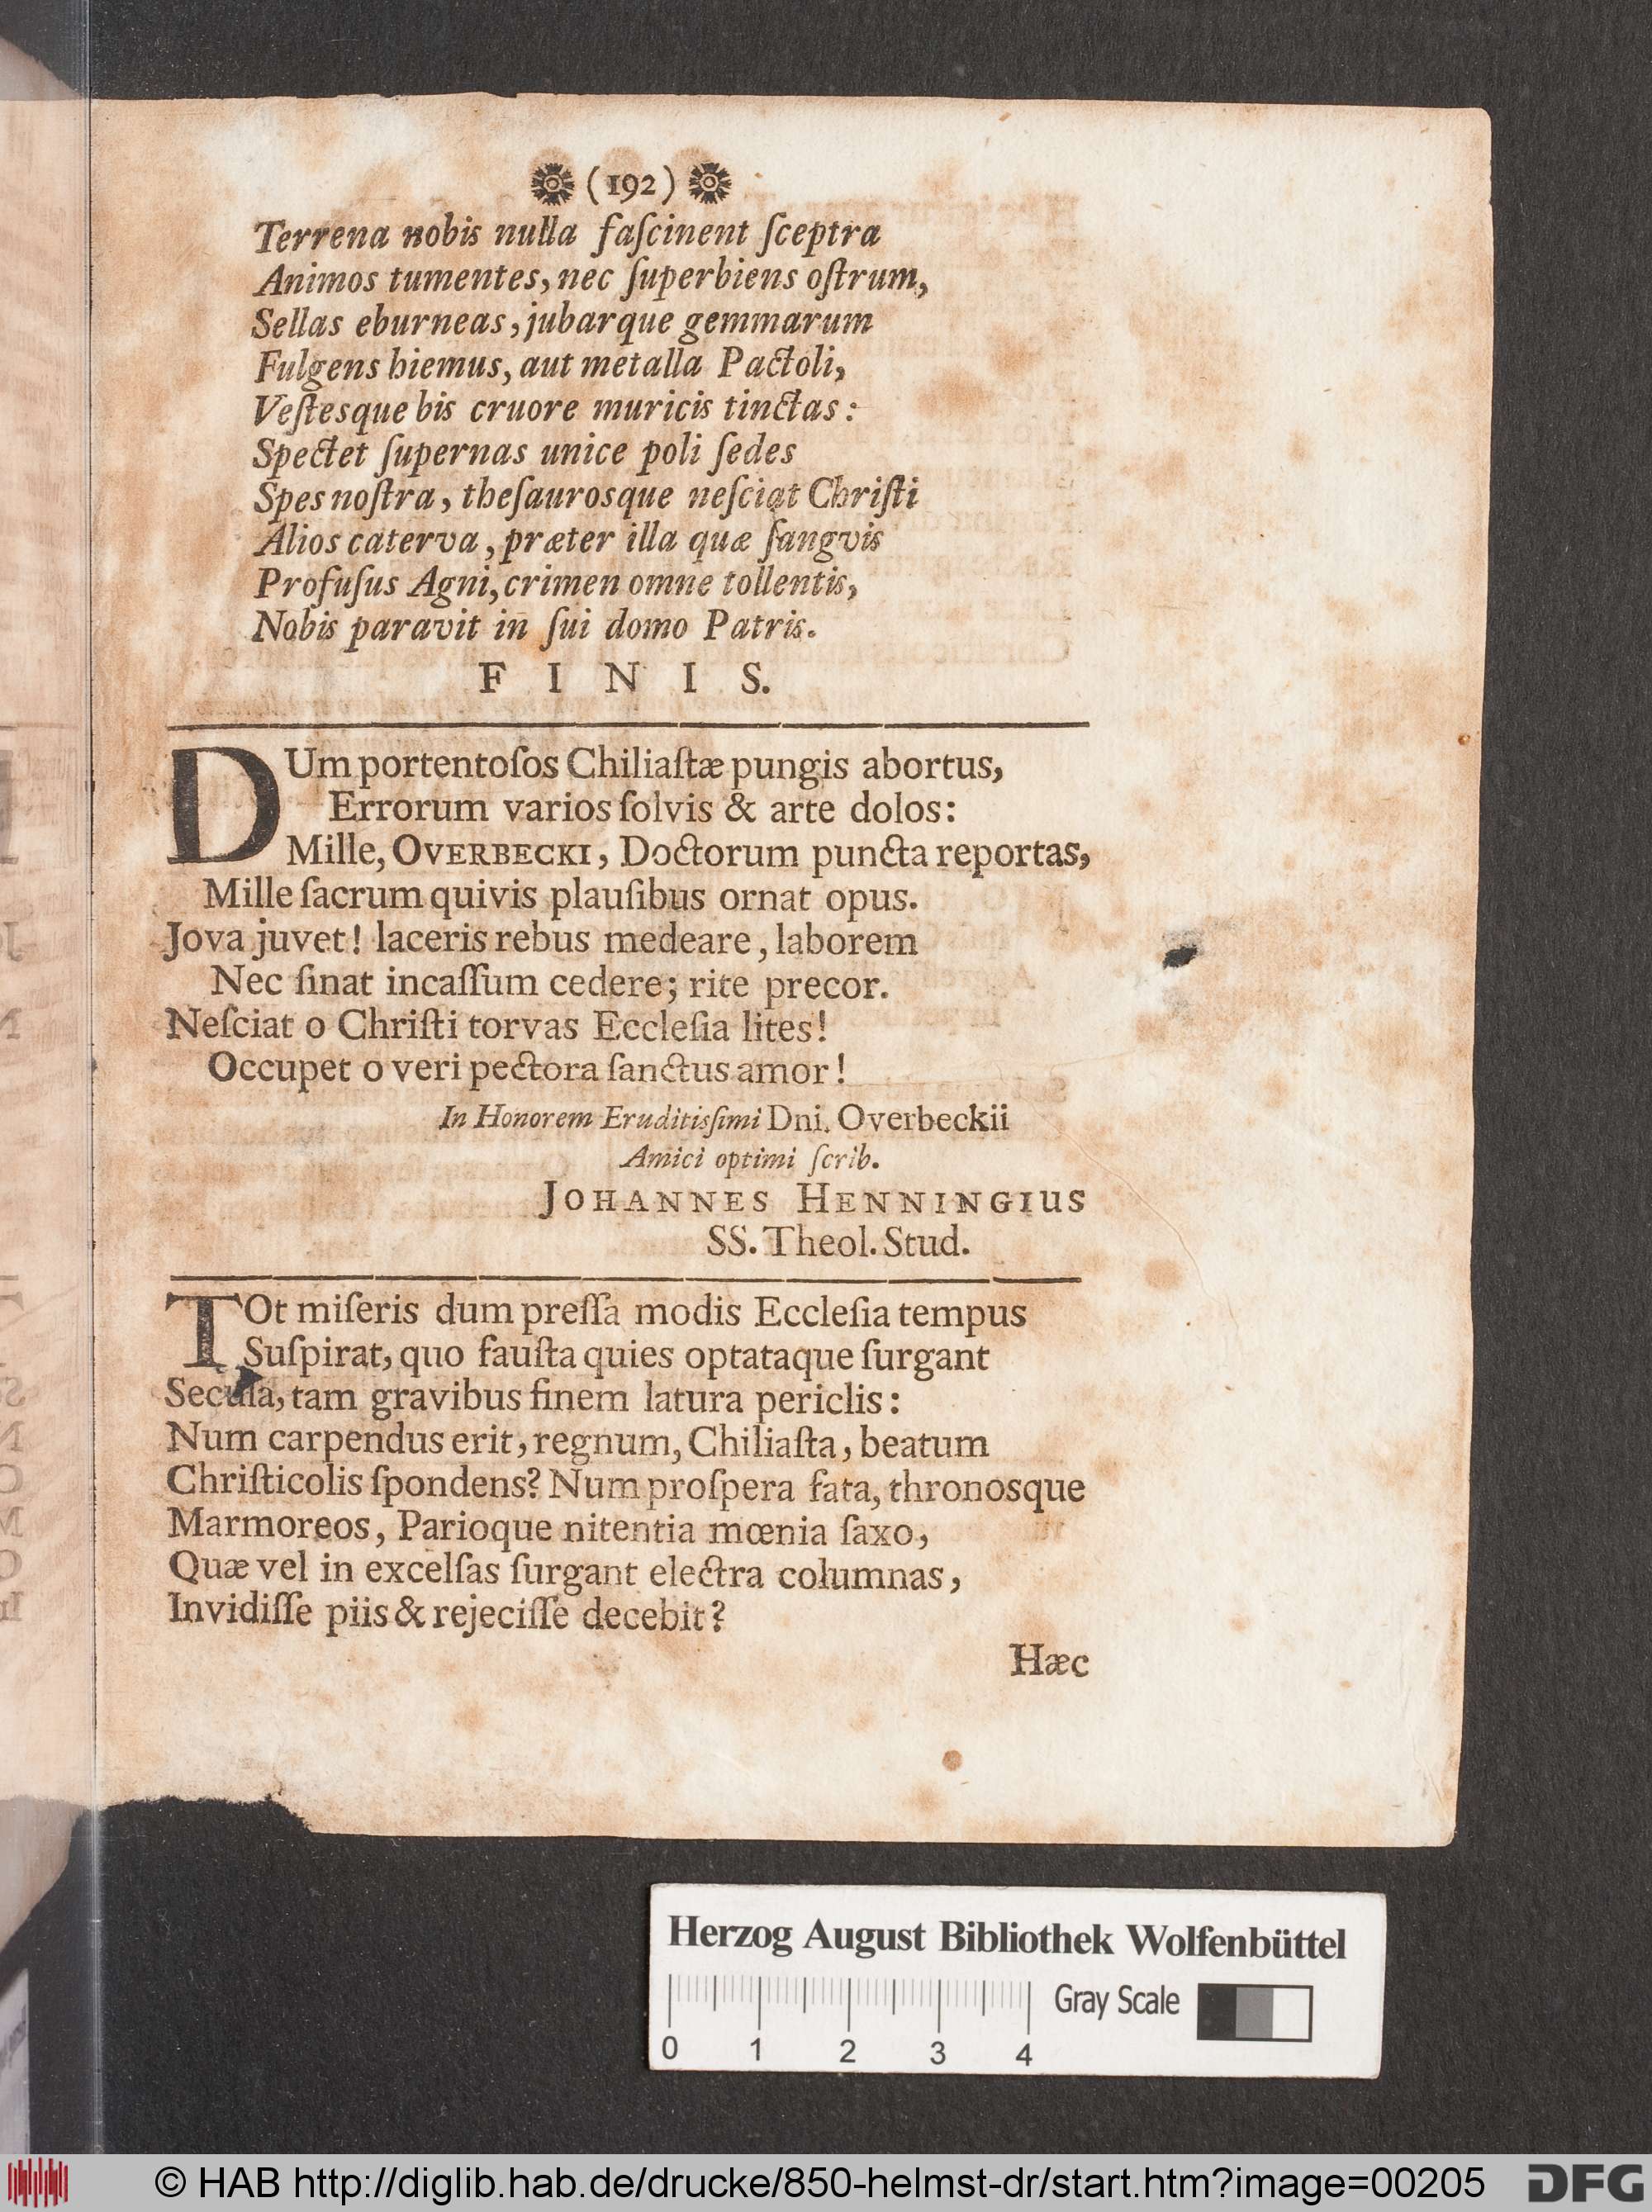 (192)
Terrena nobis nulla faſcinent ſceptra
Animos tumentes, nec ſuperbiens oſtrum,
Sellas eburneas, jubarque gemmarum
Fulgens hiemus, aut metalla Pactoli,
Veſtesque bis cruore muricis tinctas:
Spectet ſupernas unice poli ſedes
Spes noſtra, theſaurosque neſciat Chriſti
Alios caterva, præter illa quæ ſangvis
Profuſus Agni, crimen omne tollentis,
Nobis paravit in ſui domo Patris.
F I N I S.
DUm portentoſos Chiliaſtæ pungis abortus,
Errorum varios ſolvis & arte dolos:
Mille, OVERBECKI, Doctorum puncta reportas,
Mille ſacrum quivis plauſibus ornat opus.
Jova juvet! laceris rebus medeare, laborem
Nec ſinat incaſſum cedere; rite precor.
Neſciat o Chriſti torvas Eccleſia lites!
Occupet o veri pectora ſanctus amor!
In Honorem Eruditisſimi Dni. Overbeckii
Amici optimi ſcrib.
JOHANNES HENNINGIUS
SS. Theol. Stud.
TOt miſeris dum preſſa modis Eccleſia tempus
Suſpirat, quo fauſta quies optataque ſurgant
Secula, tam gravibus finem latura periclis:
Num carpendus erit, regnum, Chiliaſta, beatum
Chriſticolis ſpondens? Num proſpera fata, thronosque
Marmoreos, Parioque nitentia mœnia ſaxo,
Quæ vel in excelſas ſurgant electra columnas,
Invidiſſe piis & rejeciſſe decebit?
Hæc
Herzog August Bibliothek Wolfenbüttel
Gray Scale
0 1 2 3 4
© HAB http://diglib.hab.de/drucke/850-helmst-dr/start.htm?image=00205
DFG